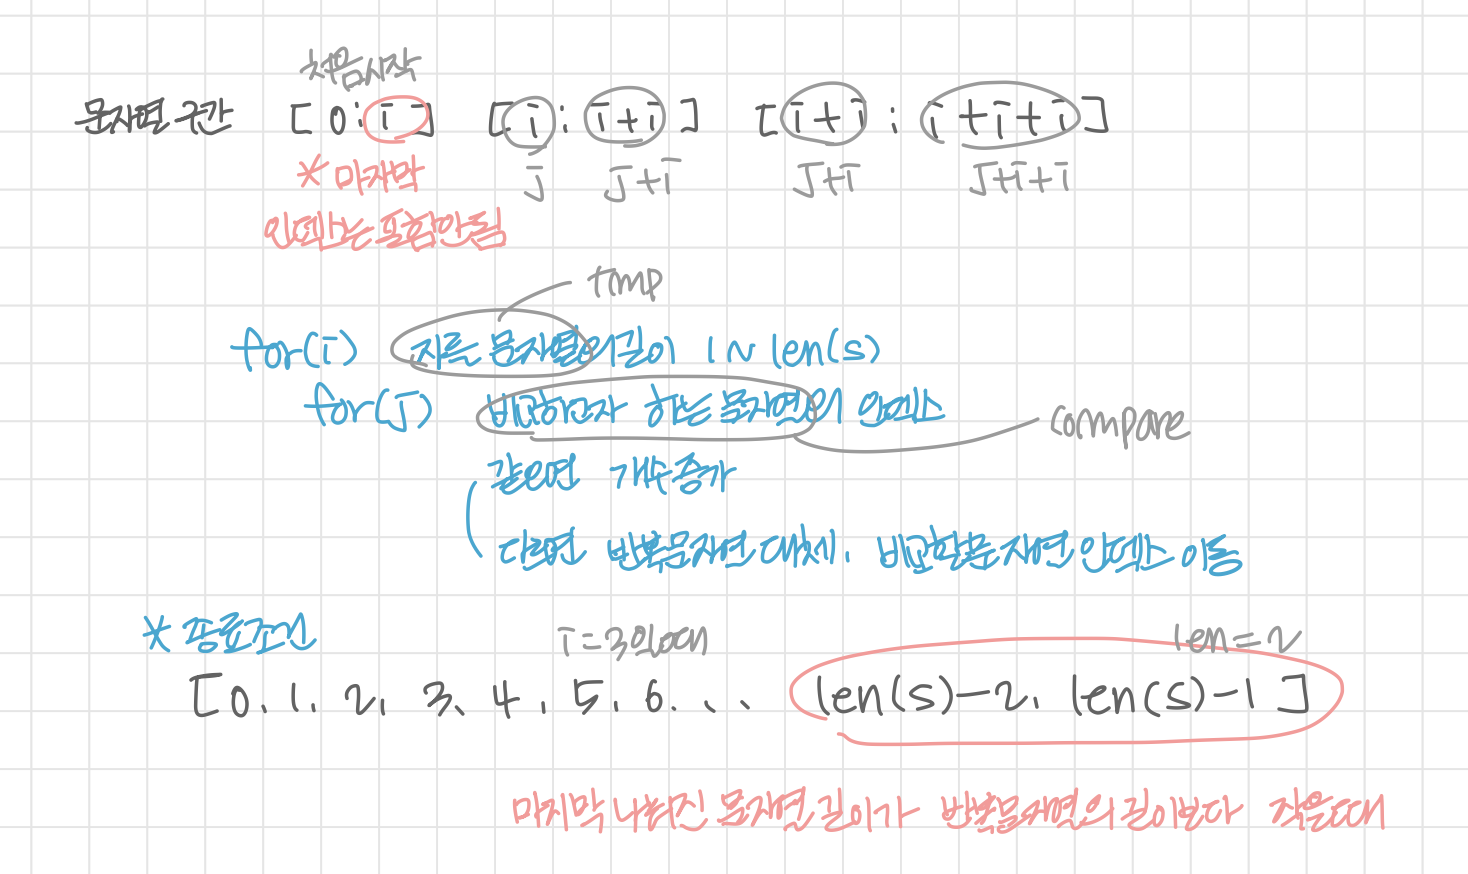 처음시작
문자열 구간 [0:i] [i:i+i] [i+i:i+i+i]
*마지막 j j+i j+i j+i+i
인덱스는 포함안됨
tmp
for(i) 자른 문자열의길이 1~len(s)
for(j) 비교하고자 하는 문자열의 인덱스
compare
같으면 개수증가
다르면 반복문자열 대체, 비교할문자열 인덱스 이동
*종료조건 i=3일때 len=2
[0, 1, 2, 3, 4, 5, 6, . . len(s)-2, len(s)-1]
마지막 나눠진 문자열 길이가 반복문자열의 길이보다 작을때